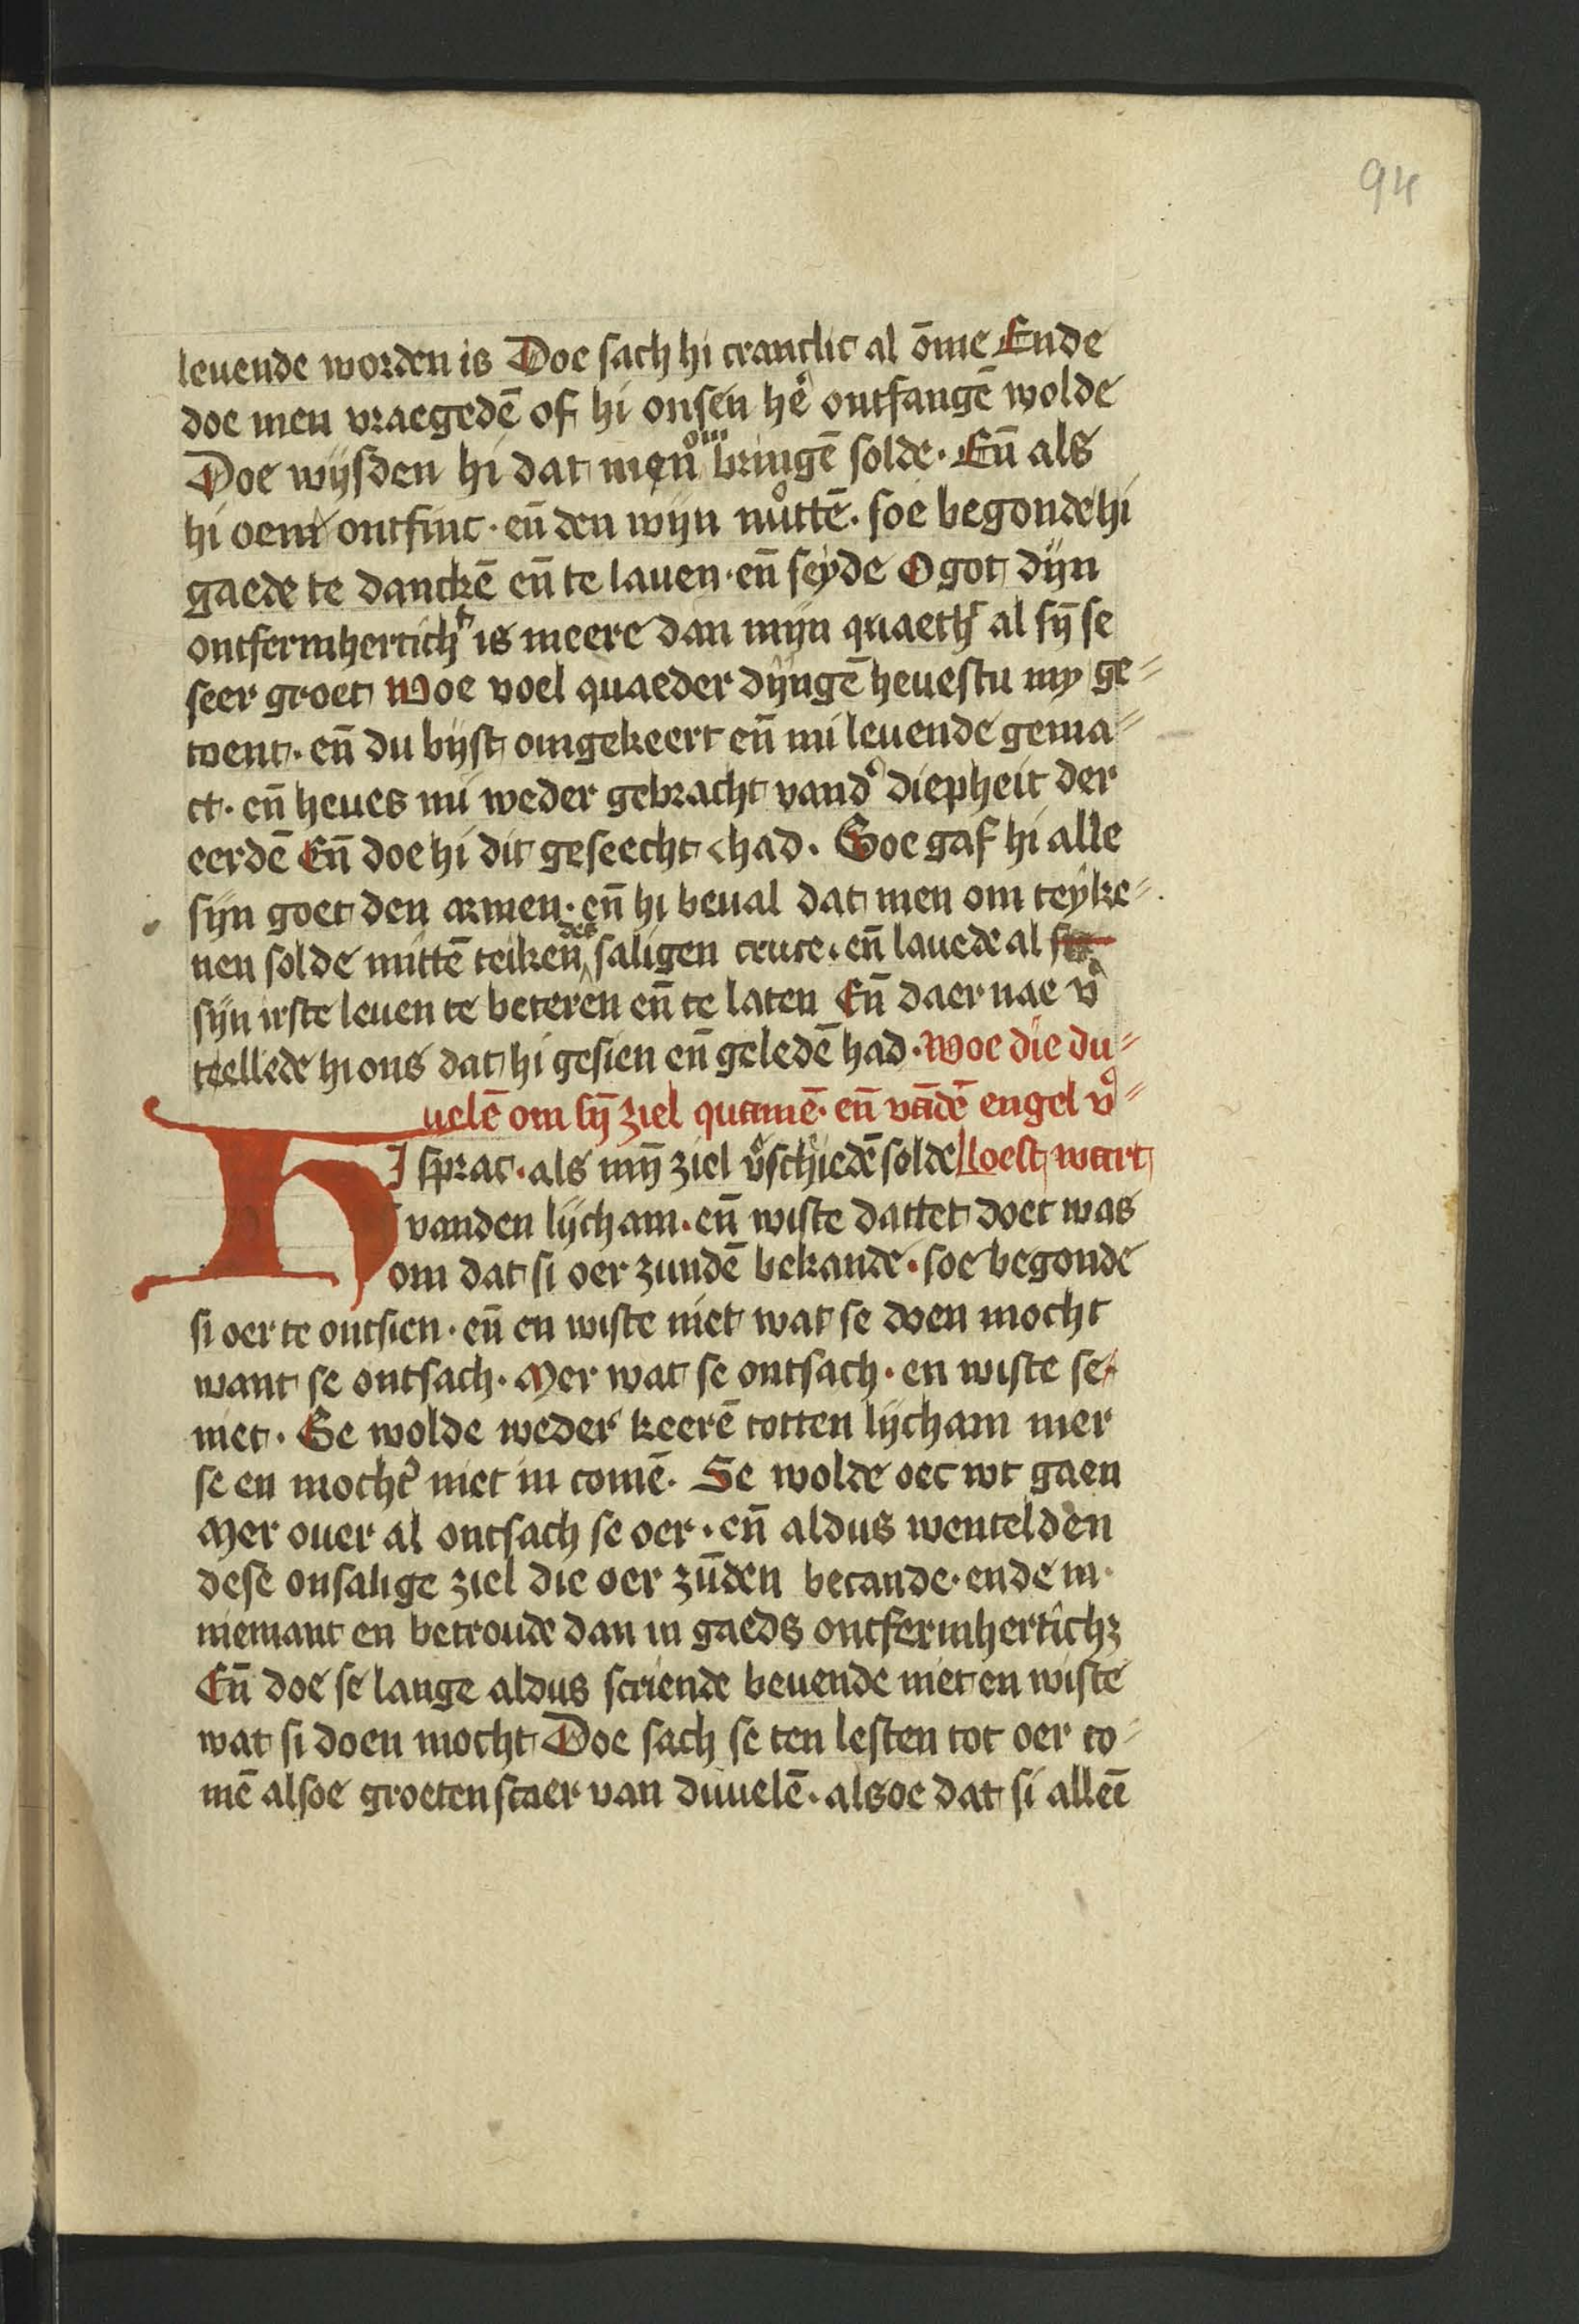 94
leuende worden is Doe sach hi cranclic al ōme Ende
doe men vraegedē of hi onsen hē ontfangē wolde
Doe wijsden hi dat men om bringē solde. Eñ als
hi oem ontfinc. eñ den wijn nuttē. soe begonde hi
gaede te danckē eñ te lauen. eñ seyde O got dijn
ontfermherticht is meere dan mijn quaeth al sȳ se
seer groet Woe voel quaeder dijngē heuestu my ge⸗
toent. eñ du bijst omgekeert eñ mi leuende gema⸗
ct. eñ heues mi weder gebracht vand' diepheit der
eerdē Eñ doe hi dit geseecht had. Soe gaf hi alle
sijn goet den armen. eñ hi beual dat men om teyke⸗
nen solde mittē teiken des saligen cruce. eñ lauede al
sijn irste leuen te beteren eñ te laten Eñ daer nae v'
teellede hi ons dat hi gesien eñ geledē had. Woe die du⸗
uelē om sȳ ziel quamē. eñ vādē engel v'⸗
HI sprac. als mȳ ziel v'schiedē solde loest wart
vanden lijcham. eñ wiste dattet doet was
om dat si oer zundē bekande. soe begonde
si oer te ontsien. eñ en wiste niet wat se doen mocht
want se ontsach. Mer wat se ontsach. en wiste se
niet. Se wolde weder keerē totten lijcham mer
se en mocht' niet in comē. Se wolde oec wt gaen
Mer ouer al ontsach se oer. eñ aldus wentelden
dese onsalige ziel die oer zūden becande. ende in
niemant en betroude dan in gaeds ontfermhertichz
Eñ doe se lange aldus scriende beuende niet en wiste
wat si doen mocht Doe sach se ten lesten tot oer co⸗
mē alsoe groeten scaer van duuelē. alsoe dat si alleē